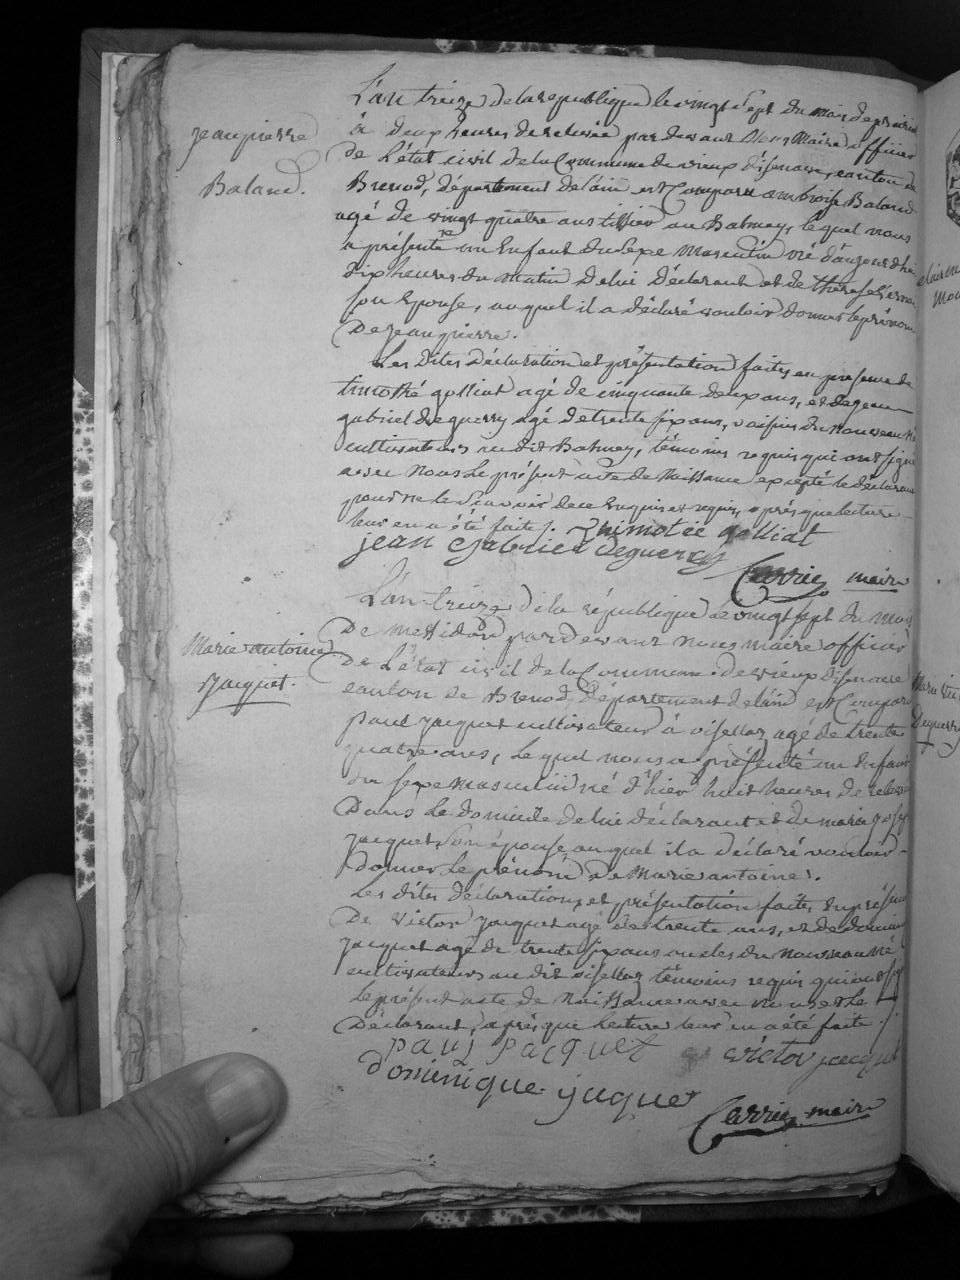 jeanpierre
Baland.
L'an treize de la republique le vingt sept du mois de prairial
à deux heures de relevée par devant Nous Maire officier
de L'état civil de la Commune de vieux d'isenave, canton de
Brenod, département de l'ain, est Comparu ambroise Baland
agé de vingt quatre ans tissier au Balmay, lequel nous
a présenté un Enfant du sexe Masculin né d'aujourd'hui
dix heures du Matin de lui Déclarant et de thérese
son Epouse, auquel il a déclaré vouloir donner le prénom
De jeanpierre.
Les dites Déclaration et présentation faites en présence de
timothé golliat agé de cinquante deux ans, et de jean
gabriel deguerry agé de trente six ans, voisins du nouveau né
cultivateurs au dit Balmay, témoins requis qui ont signé
avec Nous le présent acte de Naissance excepté le déclarant
pour ne le sçavoir de ce Enquis et requis, après que lecture
leur en a été faite.
Thimotée golliat
jean Gabriel deguerry
Carrier maire
Marie antoine
Jacquet.
L'an treize de la république le vingt sept du mois
De messidor pardevant nous maire officier
De L'état civil de la Commune de vieux d'isenave
canton de Brenod, Département de l'ain est Comparu
paul jacquet cultivateur à oisellaz agé de trente
quatre ans, Lequel nous a présenté un enfant
du sexe masculin né d'hier huit heures de relevée
Dans le domicile de lui déclarant et de marie
jacquet son épouse auquel il a déclaré vouloir
donner Le prénom de Marie antoine.
Les dites déclaration et présentation faites en présence
De victor jacquet agé de trente ans, et de dominique
jacquet agé de trente six ans oncles du nouveau né
cultivateurs au dit oisellaz témoins requis qui ont signé
Le présent acte de Naissance avec nous et Le
Déclarant, après que Lecture leur en a été faite.
paul jacquet victor jacquet
dominique jaquet
Carrier maire